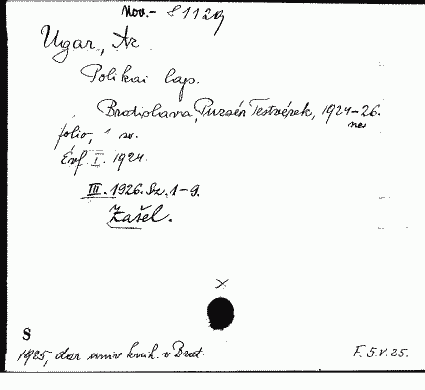 Nov.- 81129
Ugar, Az
Politikai lap.
Bratislava, Puzsér Testvérek, 1924-26.
folio, 1 sv.
Évf. I. 1924.
III. 1926. Sz. 1-9.
Zašel.
S
1925, dar univ knih. v Brat.
F. 5.V.25.